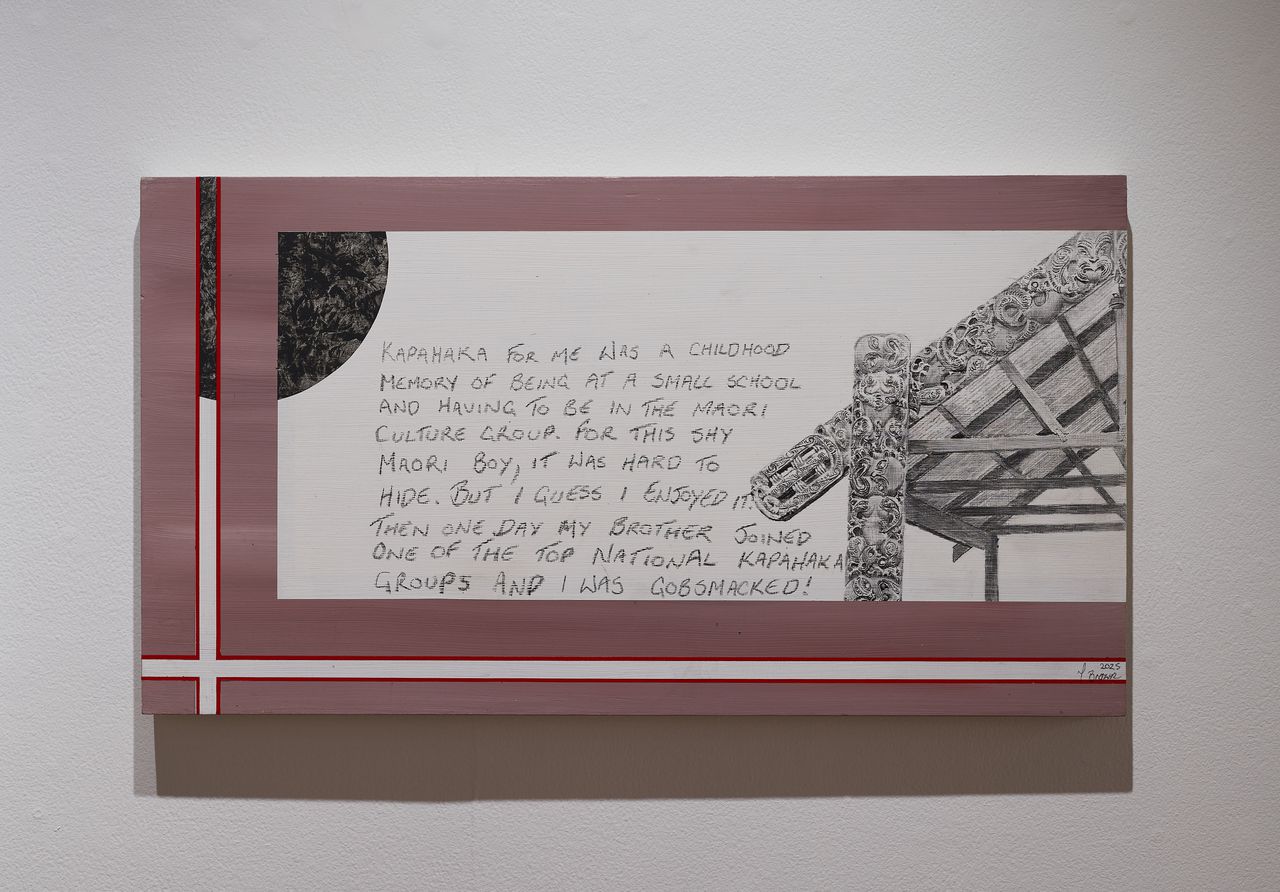 KAPAHAKA FOR ME WAS A CHILDHOOD
MEMORY OF BEING AT A SMALL SCHOOL
AND HAVING TO BE IN THE MAORI
CULTURE GROUP. FOR THIS SHY
MAORI BOY, IT WAS HARD TO
HIDE. BUT I GUESS I ENJOYED IT.
THEN ONE DAY MY BROTHER JOINED
ONE OF THE TOP NATIONAL KAPAHAKA
GROUPS AND I WAS GOBSMACKED!
2025